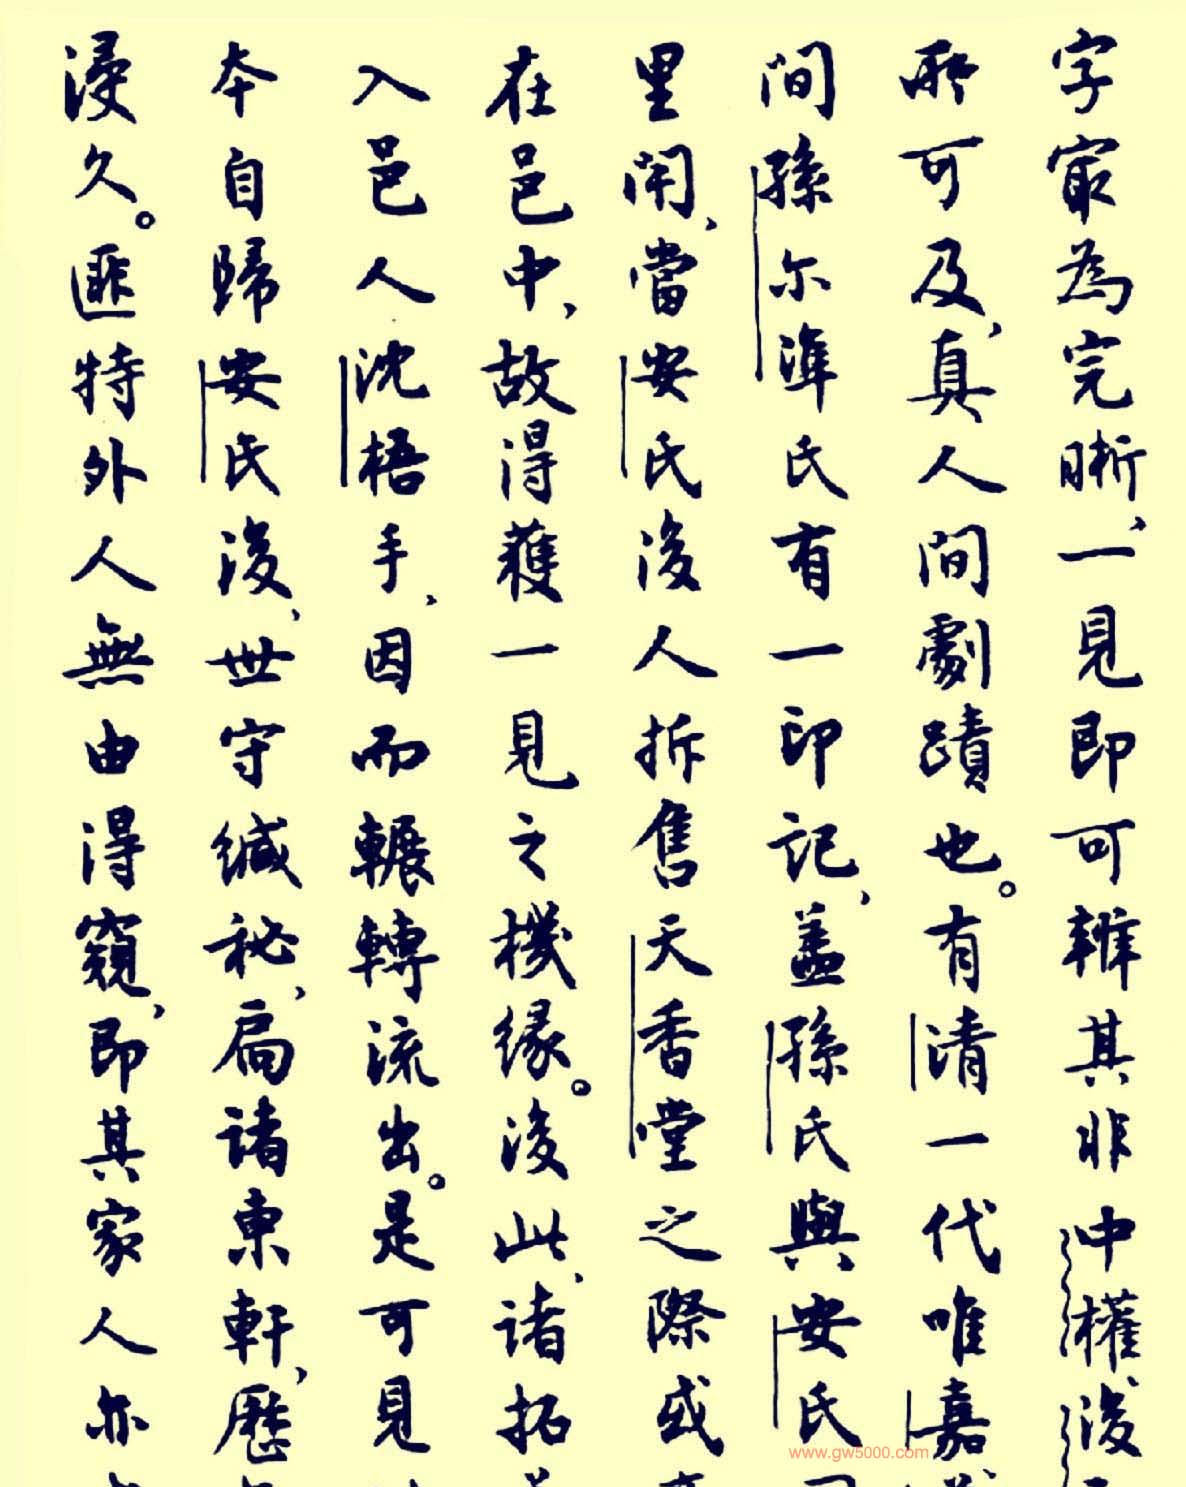 字最為完晰、一見即可辨其非中權後
所可及、真人間劇蹟也。有清一代唯嘉
間孫尔準氏有一印記、蓋孫氏與安氏
里閈、當安氏後人拆售天香堂之際或
在邑中、故得獲一見之機緣。後此、諸拓
入邑人沈梧手、因而輾轉流出。是可見
本自歸安氏後、世守緘秘、扃諸東軒、歷
浸久。匪特外人無由得窺、即其家人亦
www.gw5000.com